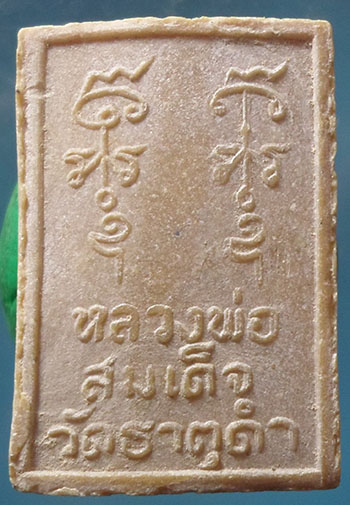 หลวงพ่อ
สมเด็จ
วัดธาตุดำ